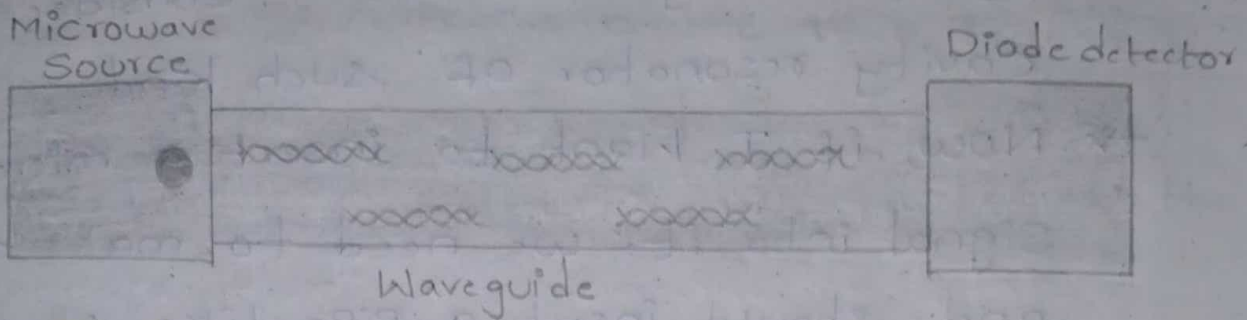 Microwave
Source
Diode detector
Waveguide